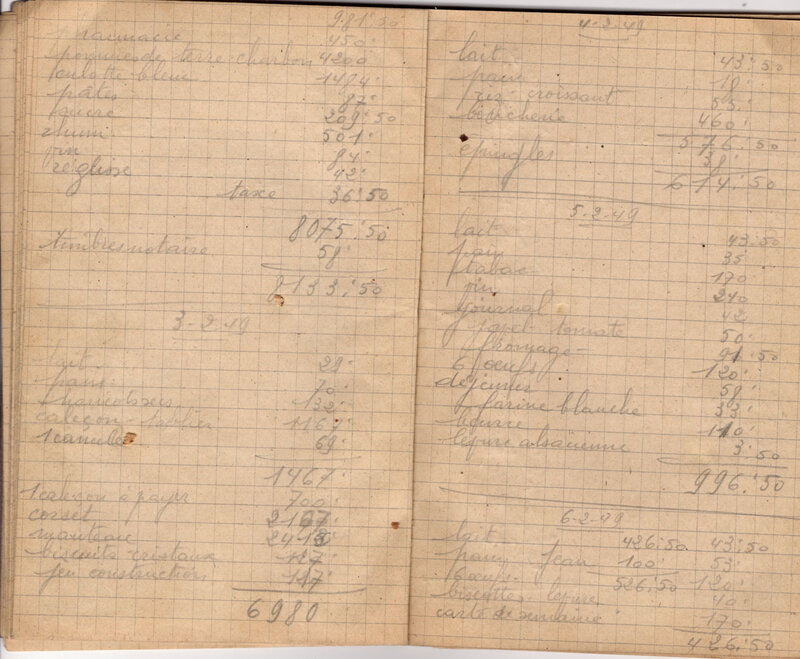 981.50
pharmacie 450
pommes de terre charbon 4200
culotte bleue 1494
pâtes 87
sucre 209.50
rhum 501
vin 84
réglisse 42
taxe 36.50
8075.50
timbres notaire 58
8133.50
3-2-49
lait 29
pain 70
132
caleçon tablier 1167
69
1467
1 caleçon à payer 700
corset
manteau
biscuits cristaux
jeu construction
6980
4-2-49
lait 43.50
pain 18
riz croissant 55
boucherie 460
576.50
épingles 38
614.50
5-2-49
lait 43.50
pain 35
tabac 170
vin 240
journal 42
tomate 50
fromage 91.50
6 œufs 120
déjeuner 58
farine blanche 33
beurre 110
levure alsacienne 3.50
996.50
6-2-49
lait 426.50 43.50
pain Jean 100 53
6 œufs 526.50 120
biscuites levure 40
carte de semaine 170
426.50